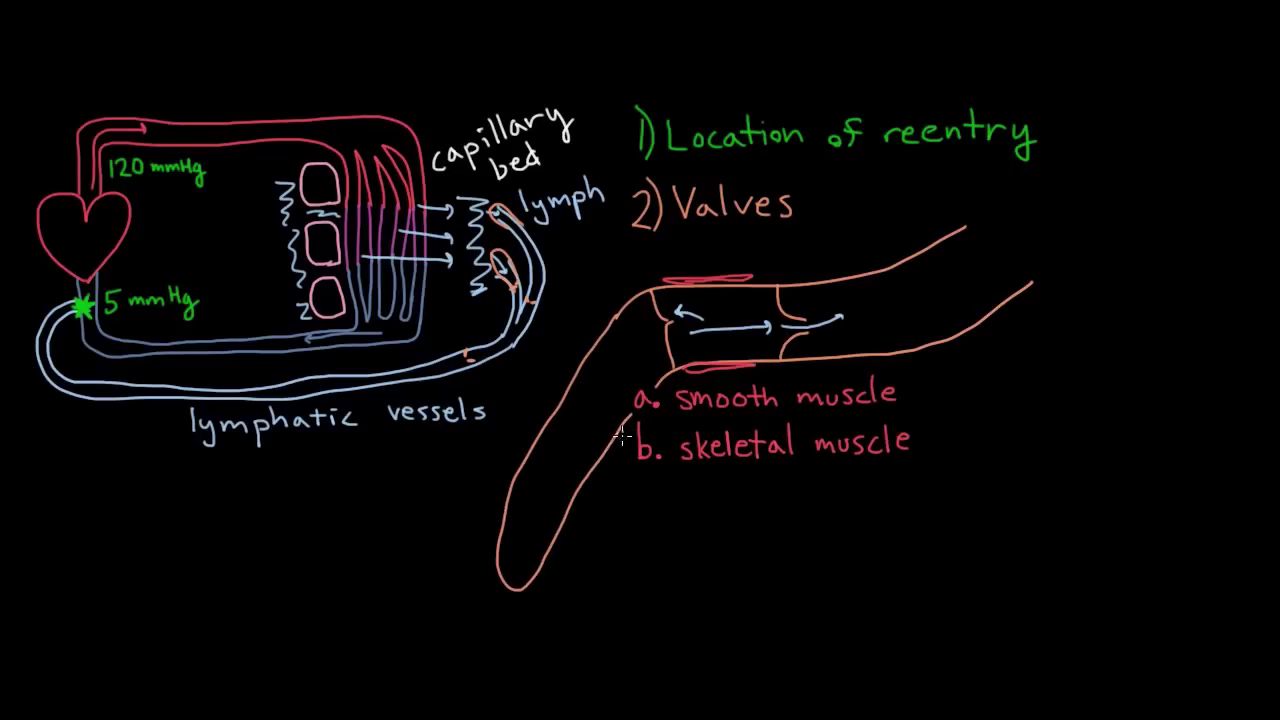 120 mmHg
5 mmHg
capillary
bed
lymph
lymphatic vessels
1) Location of reentry
2) Valves
a. smooth muscle
b. skeletal muscle